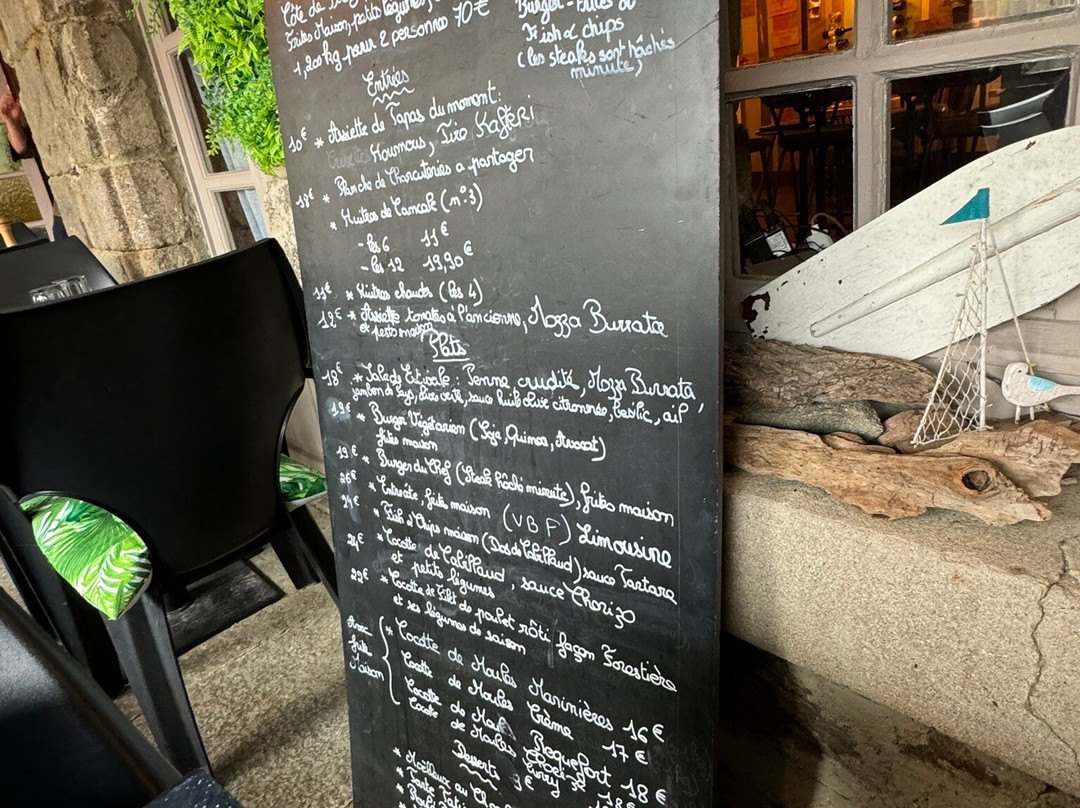 Côte de
Frites Maison, petits légumes,
1,200 kg pour 2 personne 70€
Burger - Pâtes ou
Fish & chips
(les steaks sont hâchés
minute)
Entrées
10€ * Assiette de Tapas du moment:
Houmous, Tiro Kafteri
18€ * Planche de Charcuteries a partager
* Huitres de Cancale (n°3)
- les 6 11€
- les 12 19,90€
11€ * Huitres chauds (les 4)
12€ * Assiette tomates à l'ancienne, Mozza Burrata
et pesto maison
Plats
18€ * Salade Estivale : Penne crudité, Mozza Burrata,
jambon de Pays, olive verte, sauce huile olive citronnée, basilic, ail
19€ * Burger Végétarien (Soja, Quinoa, Avocat)
frites maison
19€ * Burger du Chef (Steak hâché minute), frites maison
26€ * Entrecôte, frites maison (VBF) Limousine
24€ * Fish & Chips maison (Dos de Cabillaud) sauce Tartare
24€ * Cocotte de Cabillaud, sauce Chorizo
et petits légumes
22€ * Cocotte de Filet de poulet rôti façon Forestière
et ses légumes de saison
Avec
frites
Maison
* Cocotte de Moules Marinières 16€
Cocotte de Moules Crème 17€
Cocotte de Moules Roquefort 18€
Cocotte de Moules Curry 18€
Desserts
* Moelleux au
* Tarte